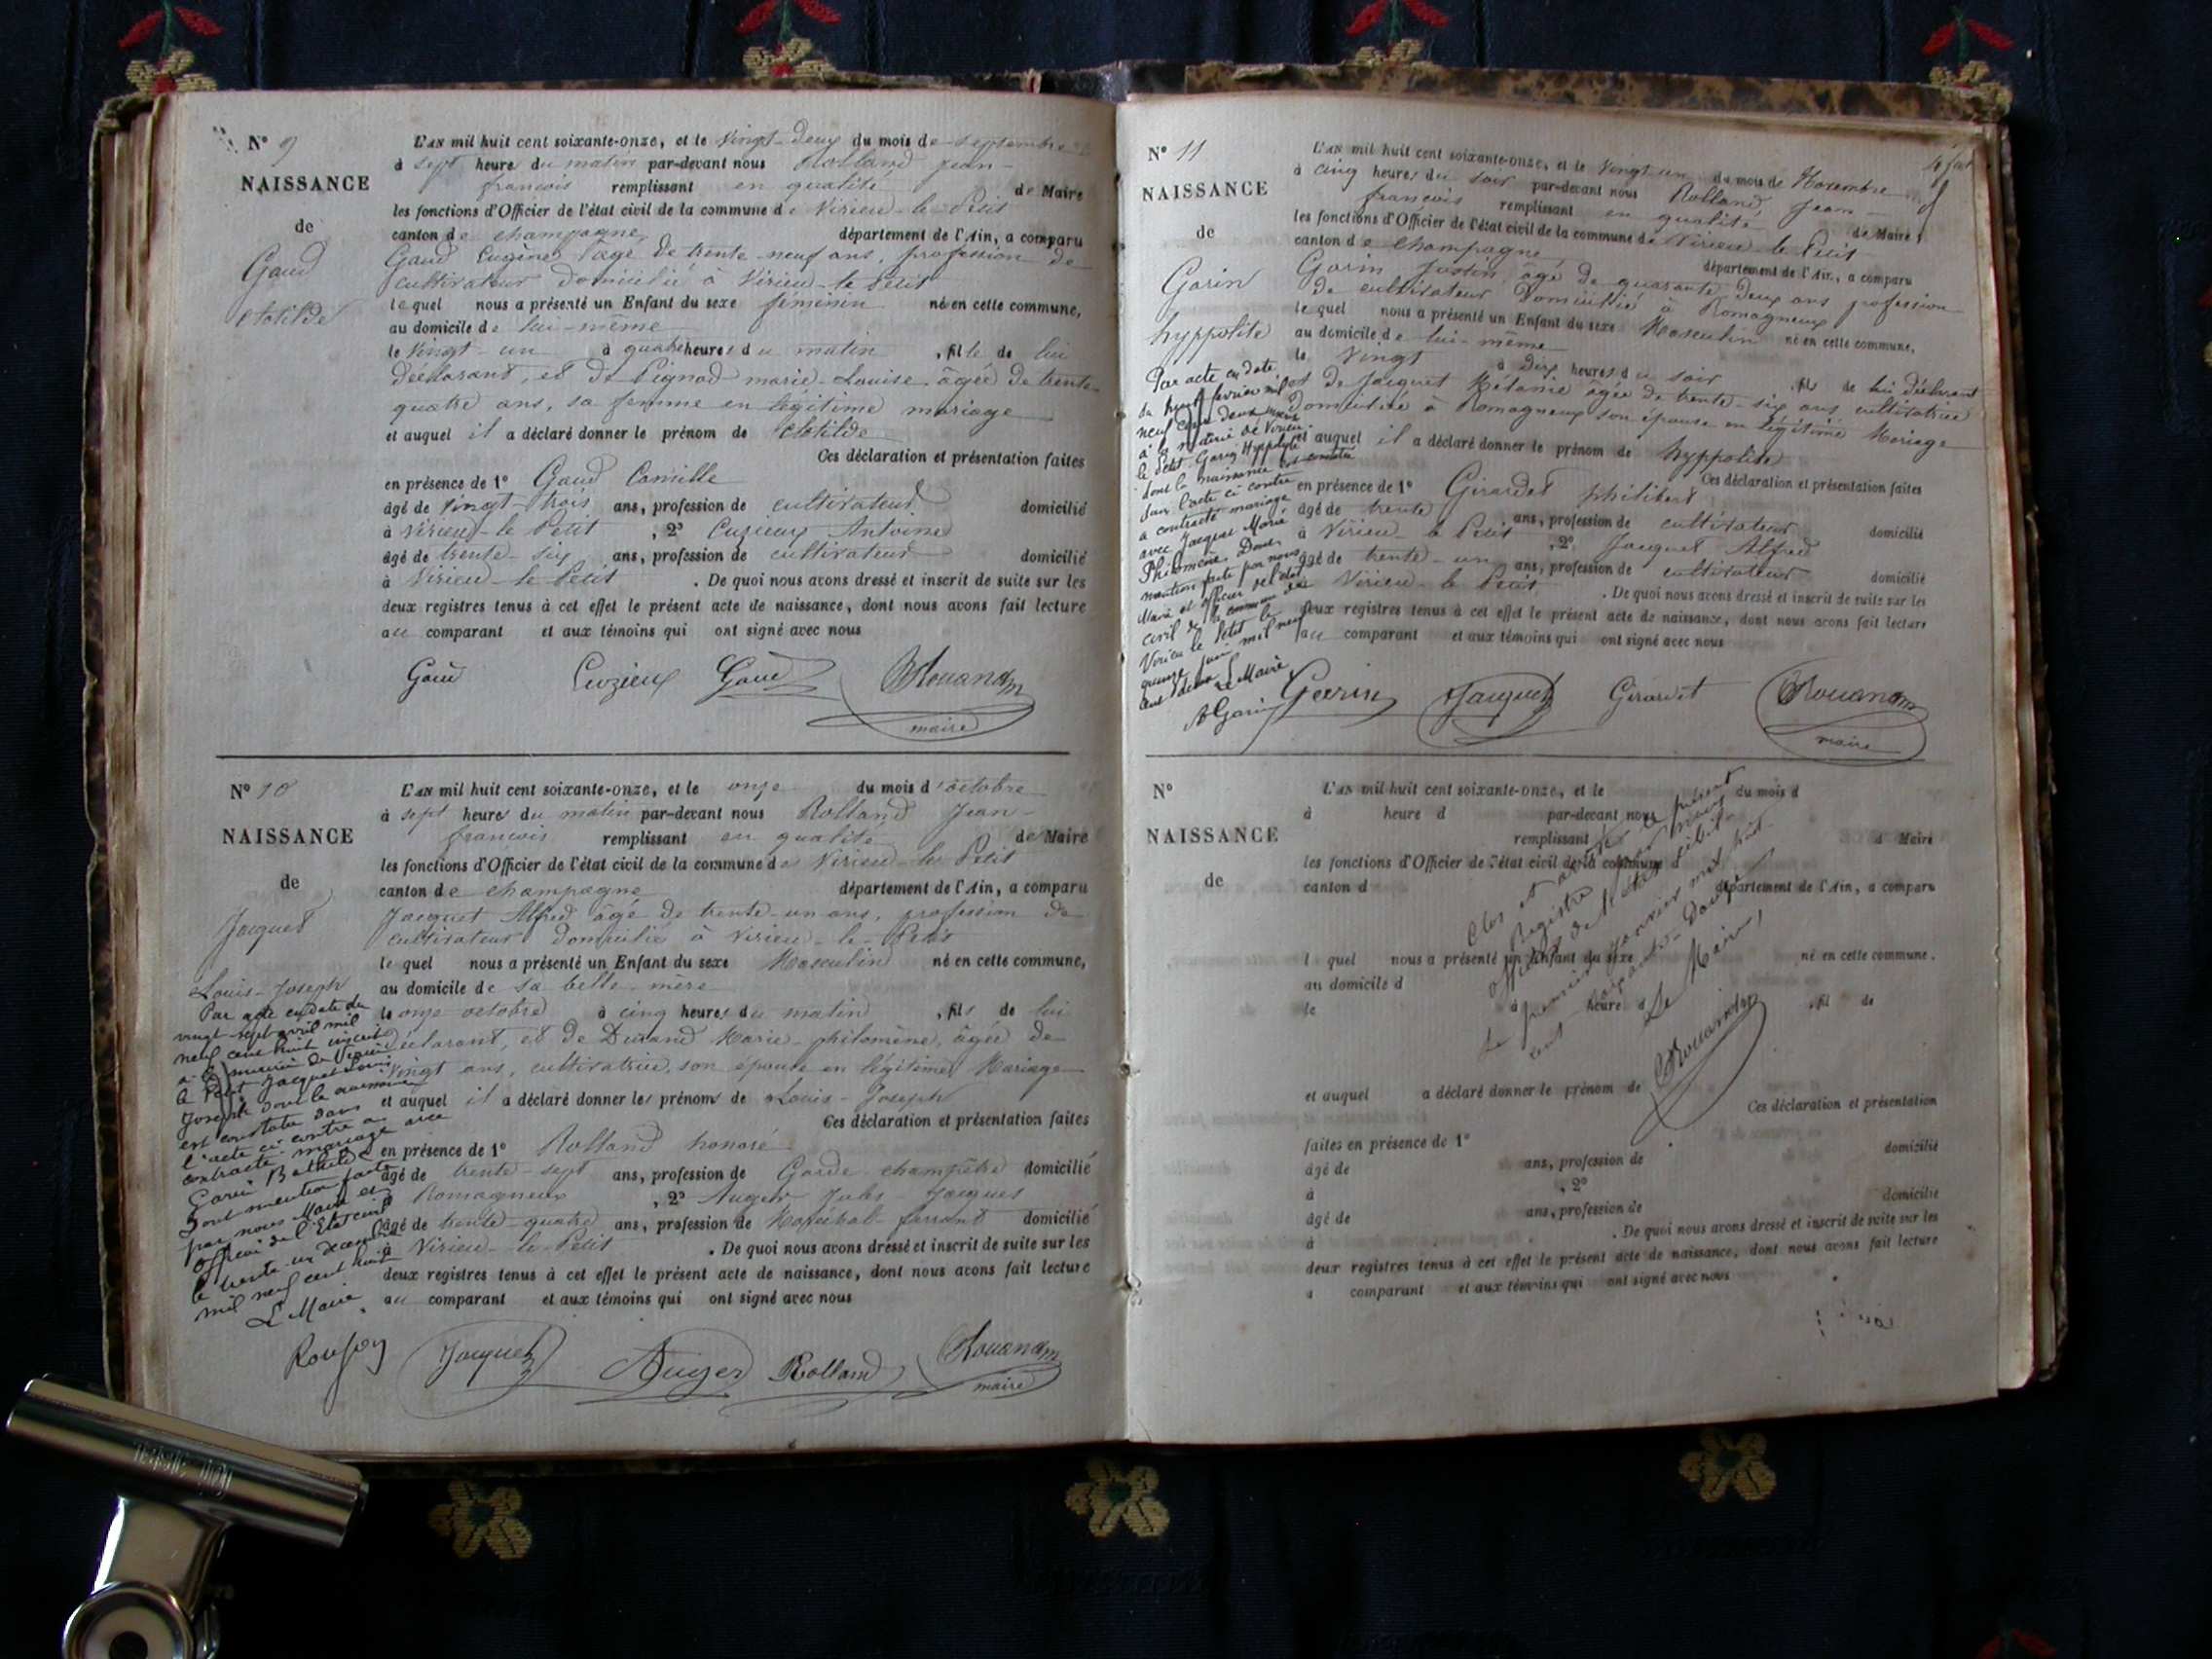 N° 9
NAISSANCE
de
Gaud
Clotilde
L'AN mil huit cent soixante-onze, et le vingt-deux du mois de septembre
à sept heure du matin par-devant nous Rolland jean-
françois remplissant en qualité de Maire
les fonctions d'Officier de l'état civil de la commune de Virieu-le-Petit
canton de champagne département de l'Ain, a comparu
Gaud Eugène âgé de trente-neuf ans, profession de
cultivateur domicilié à Virieu-le-Petit
lequel nous a présenté un Enfant du sexe féminin né en cette commune,
au domicile de lui-même
le vingt-un à quatre heures du matin, fille de lui
déclarant, et de Pignod marie-Louise âgée de trente-
quatre ans, sa femme en légitime mariage
et auquel il a déclaré donner le prénom de Clotilde
Ces déclaration et présentation faites
en présence de 1° Gaud Camille
âgé de vingt-trois ans, profession de cultivateur domicilié
à Virieu-le-Petit, 2° Cuzieux Antoine
âgé de trente-six ans, profession de cultivateur domicilié
à Virieu-le-Petit. De quoi nous avons dressé et inscrit de suite sur les
deux registres tenus à cet effet le présent acte de naissance, dont nous avons fait lecture
au comparant et aux témoins qui ont signé avec nous
Gaud Cuzieux Gaud
maire
N° 10
NAISSANCE
de
Jacquet
Louis-Joseph
Par acte en date du
vingt-sept avril mil
neuf cent huit inscrit
à la mairie de Virieu
le Petit Jacquet Louis
Joseph dont la naissance
est constatée dans
l'acte ci-contre a
contracté mariage avec
Garin
Dont mention faite
par nous Maire et
officier de l'Etat civil
le trente un décembre
mil neuf cent huit
Le Maire
L'AN mil huit cent soixante-onze, et le onze du mois d'octobre
à sept heures du matin par-devant nous Rolland Jean-
françois remplissant en qualité de Maire
les fonctions d'Officier de l'état civil de la commune de Virieu-le-Petit
canton de champagne département de l'Ain, a comparu
Jacquet Alfred âgé de trente-un ans, profession de
cultivateur domicilié à Virieu-le-Petit
lequel nous a présenté un Enfant du sexe Masculin né en cette commune,
au domicile de sa belle-mère
le onze octobre à cinq heures du matin, fils de lui
déclarant, et de Durand Marie-philomène, âgée de
vingt ans, cultivatrice, son épouse en légitime Mariage
et auquel il a déclaré donner les prénoms de Louis-Joseph
Ces déclaration et présentation faites
en présence de 1° Rolland honoré
âgé de trente-sept ans, profession de Garde-champêtre domicilié
à Romagneux, 2° Auger Jules Jacques
âgé de trente-quatre ans, profession de Maréchal-ferrant domicilié
à Virieu-le-Petit. De quoi nous avons dressé et inscrit de suite sur les
deux registres tenus à cet effet le présent acte de naissance, dont nous avons fait lecture
au comparant et aux témoins qui ont signé avec nous
Jacquet Auger Rolland
maire
N° 11
NAISSANCE
de
Garin
hyppolite
Par acte en date
du huit février mil
neuf cent deux inscrit
à la mairie de Virieu
le Petit Garin Hyppolyte
dont la naissance est constatée
dans l'acte ci contre
a contracté mariage
avec Jacquet Marie
Philomène. Dont
mention faite par nous
Maire et officier de l'état
civil de la commune de
Virieu le Petit le
quinze juin mil neuf
cent deux
Le Maire
Garin
L'AN mil huit cent soixante-onze, et le vingt-un du mois de Novembre
à cinq heures du soir par-devant nous Rolland Jean-
françois remplissant en qualité de Maire
les fonctions d'Officier de l'état civil de la commune de Virieu-le-Petit
canton de champagne département de l'Ain, a comparu
Garin Justin âgé de quarante-deux ans profession
de cultivateur domicilié à Romagneux
lequel nous a présenté un Enfant du sexe Masculin né en cette commune,
au domicile de lui-même
le vingt à deux heures du soir, fils de lui déclarant
et de Jacquet Mélanie âgée de trente-six ans cultivatrice
domiciliée à Romagneux son épouse en légitime Mariage
et auquel il a déclaré donner le prénom de hyppolite
Ces déclaration et présentation faites
en présence de 1° Girardet philibert
âgé de trente ans, profession de cultivateur domicilié
à Virieu-le-Petit, 2° Jacquet Alfred
âgé de trente-un ans, profession de cultivateur domicilié
à Virieu-le-Petit. De quoi nous avons dressé et inscrit de suite sur les
deux registres tenus à cet effet le présent acte de naissance, dont nous avons fait lecture
au comparant et aux témoins qui ont signé avec nous
Jacquet Girardet
maire
N°
NAISSANCE
de
L'AN mil huit cent soixante-onze, et le du mois d
à heure d par-devant nous
remplissant d Maire
les fonctions d'Officier de l'état civil de la commune d
canton d département de l'Ain, a comparu
l quel nous a présenté un Enfant du sexe né en cette commune,
au domicile d
le à heure d, fil de
et auquel a déclaré donner le prénom de
Ces déclaration et présentation
faites en présence de 1°
âgé de ans, profession de domicilié
à, 2°
âgé de ans, profession de domicilié
à. De quoi nous avons dressé et inscrit de suite sur les
deux registres tenus à cet effet le présent acte de naissance, dont nous avons fait lecture
a comparant et aux témoins qui ont signé avec nous
Clos et arrêté le présent
Registre par nous
officier de l'état civil
le premier janvier mil huit
cent soixante-douze
Le Maire,